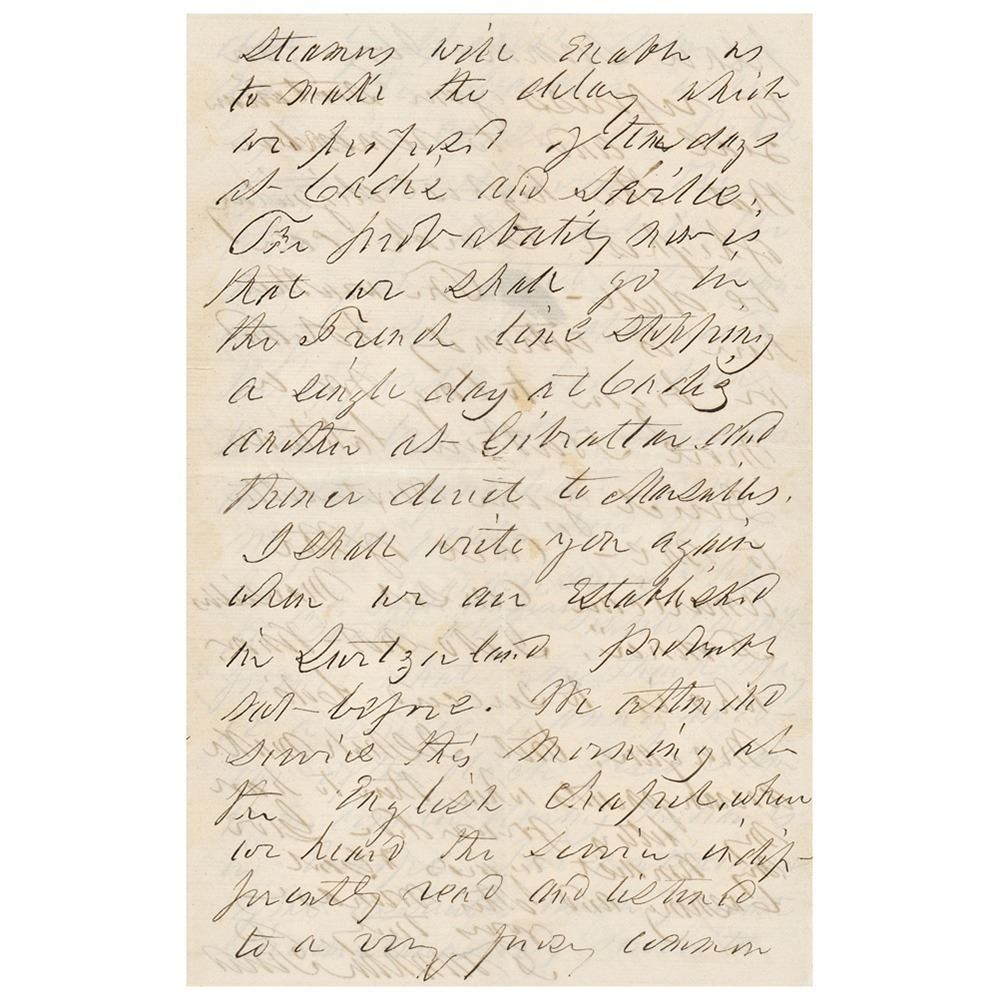 steamers will enable us
to make the delay which
we proposed of ten days
at Cadiz and Seville.
The probability now is
that we shall go in
the French line stopping
a single day at Cadiz
another at Gibraltar and
thence direct to Marseilles.
I shall write you again
when we are established
in Switzerland probably
not before. We attended
service this morning at
the English Chapel, where
we heard the service indif-
ferently read and listened
to a very prosy common